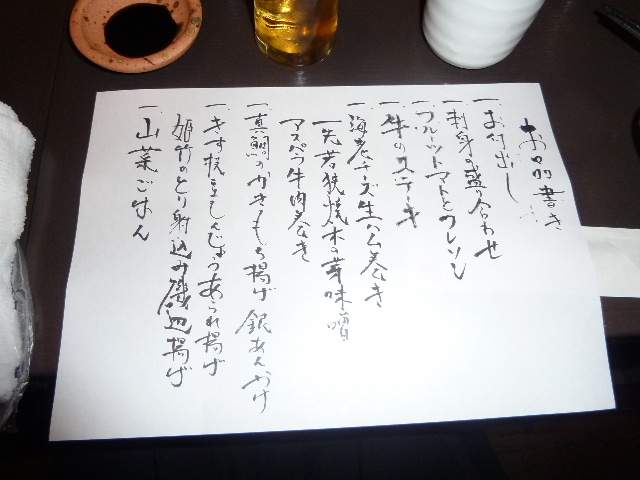 お品書き
一、お付出し
一、刺身の盛り合わせ
一、フルーツトマトとクレソン
一、牛のステーキ
一、海老チーズ生ハム巻き
一、先若狭焼木の芽味噌
アスペラ牛肉巻き
一、真鯛のかきもち揚げ 銀あんかけ
一、きす枝豆しんじょうあられ揚げ
姫竹のとり射込み磯辺揚げ
一、山菜ごはん